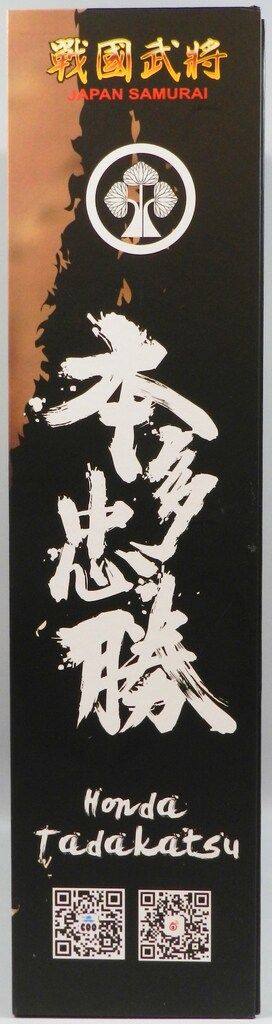 戰國武將
JAPAN SAMURAI
本多忠勝
Honda
Tadakatsu
COO